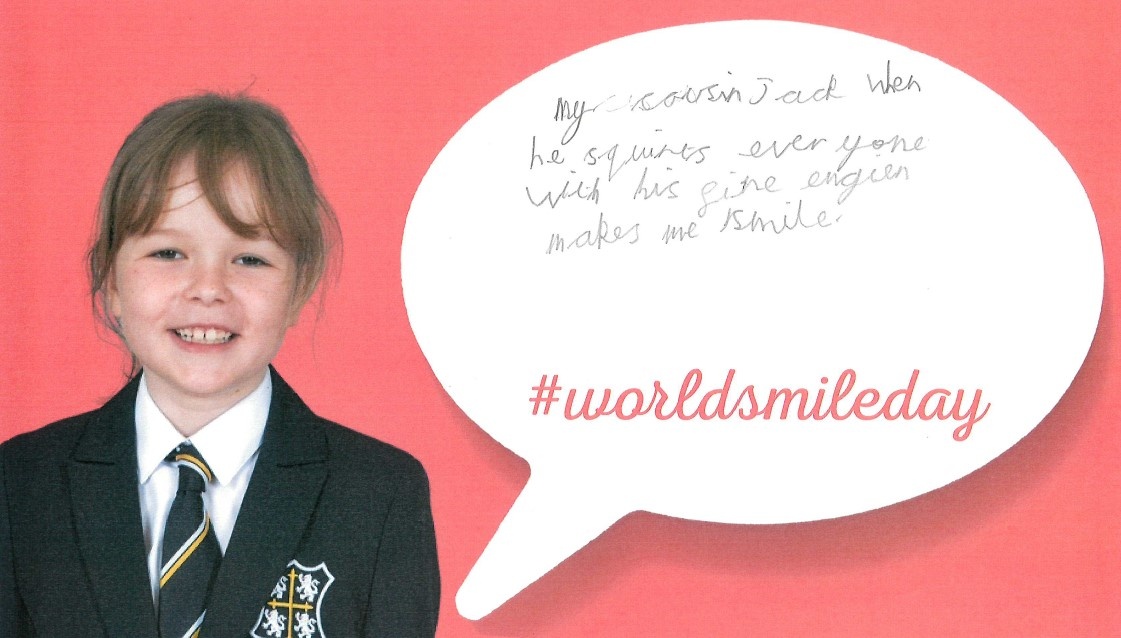 my cousin Jack when
he squirts everyone
with his fire engien
makes me smile.
#worldsmileday